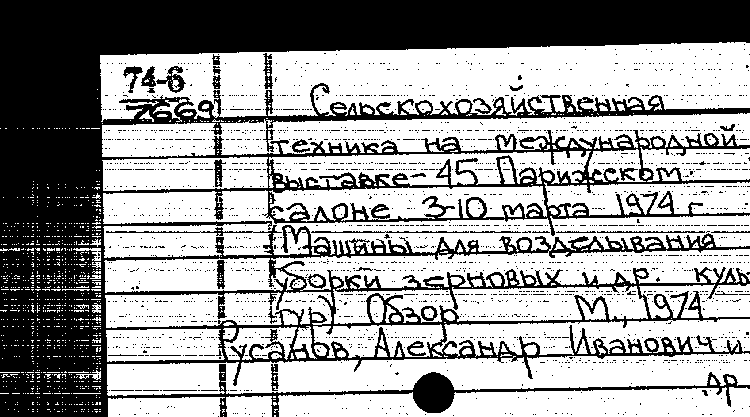 74-6
7669
Сельскохозяйственная
техника на международной
выставке - 45 Парижском
салоне 3-10 марта 1974 г
(Машины для возделывания
уборки зерновых и др. куль
тур). Обзор М., 1974.
Русанов, Александр Иванович и
др